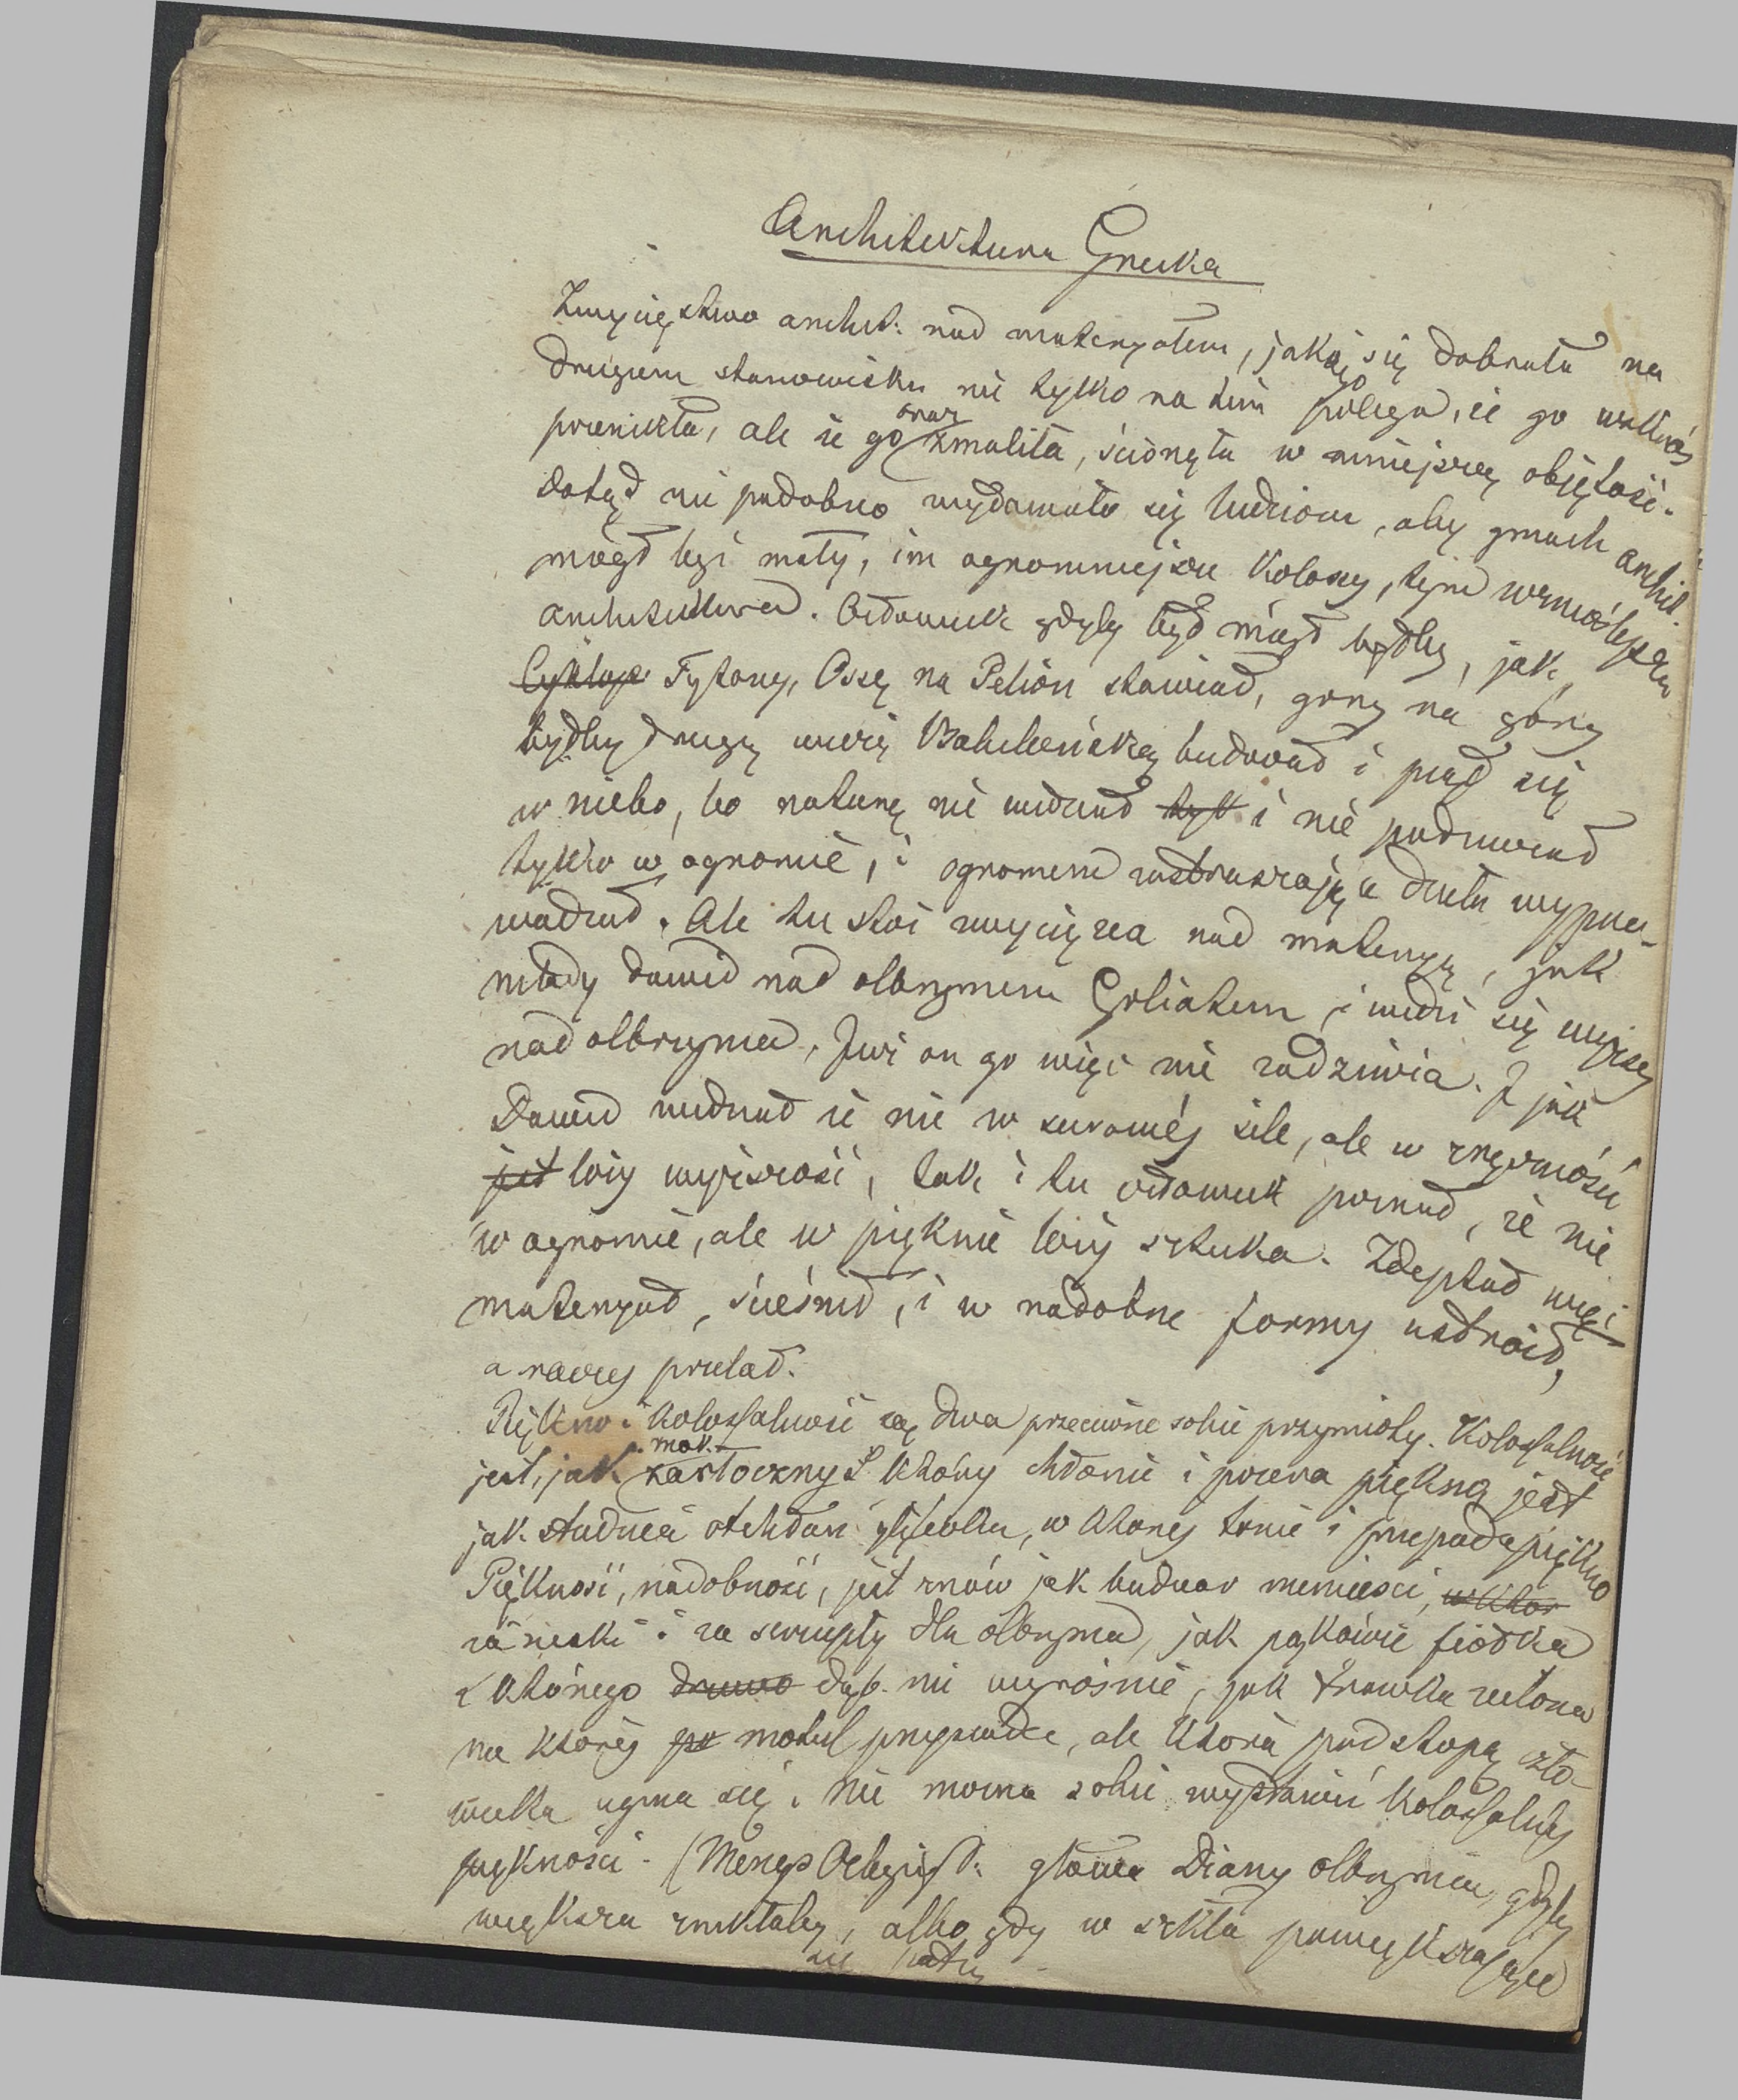 Architektura Grecka
Zwycięstwo archit: nad materyałem, jaką się dobrała na
drugiem stanowisku nie tylko na tem polega, że go wskróś
przenikła, ale że go oraz zmaliła, ściągnęła w mniejszą objętość.
dotąd nie podobno wydawało się ludziom, aby gmach archit.
mógł być mały, im ogromniejsze kolosy, tem wznioślejsza
architektura. Człowiek gdyby był mógł byłby, jak
Cyklope Tytany, Ossę na Pelion stawiał, góry na góry
byłby drugą wieżę Babilońską budował i piął się
w niebo, bo naturę nie widział tyl i nie podziwiał
tylko w ogromie, i ogromem zastraszające dzieła wypro-
wadzał. Ale tu stoi zwycięzca nad materyą, jak
młady Dawid nad olbrzymem Goliatem, i widzi się wyższy
nad olbrzyma, Już on go więc nie zadziwia. I jak
Dawid widział że nie w surowéj sile, ale w zręczności
jest leży wyższość, tak i tu człowiek poznał, że nie
w ogromie, ale w pięknie leży sztuka. Zdeptał więc
materyał, ścieśnił, i w nadobne formy ustroił,
a raczej przelał.
Piękno i kolossalność są dwa przeciwne sobie przymioty. Kolossalność
jest, jak żarłoczny smok który chłonie i pożera piękno, jest
jak studnia otchłań głęboka, w której tonie i przepada piękno
Piękność, nadobność, jest znów jak buduar niewieści, w któr
za nizki i za szczupły dla olbrzyma, jak pąkowie fiołka
z którego drzewo dąb nie wyrośnie, jak trawka zielona
na któréj po motyl przysiądzie, ale która pod stopą czło-
wieka ugina się. Nie można sobie wystawić kolossalnéj
piękności. (Mengs głowa Diany olbrzymia, gdyby
większa znikłaby, albo gdy w szkła powiększające
się patrzy